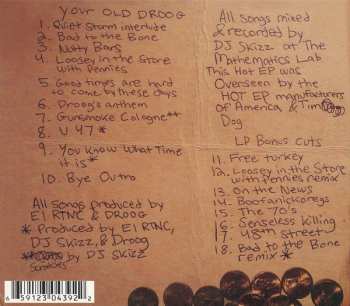 YOUR OLD DROOG
1. Quiet Storm interlude
2. Bad to the Bone
3. Nutty Bars
4. Loosey in the Store
with Pennies
5. Good times are hard
to come by these days
6. Droog's anthem
7. Gunsmoke Cologne**
8. U 47*
9. You Know What Time
it is*
10. Bye Outro
All Songs produced by
El RTNC & DROOG
* Produced by El RTNC,
DJ Skizz, & Droog
** by DJ Skizz
6 59123 04392 2
All songs mixed
& recorded by
DJ Skizz at The
Mathematics Lab
This Hot EP was
Overseen by the
HOT EP manufacturers
of America & Tim
Dog
LP Bonus cuts
11. Free turkey
12. Loosey in the Store
with Pennies remix
13. On the News
14. Boofanickoreys
15. The 70's
16. Senseless Killing
17. 48th Street
18. Bad to the Bone
remix*